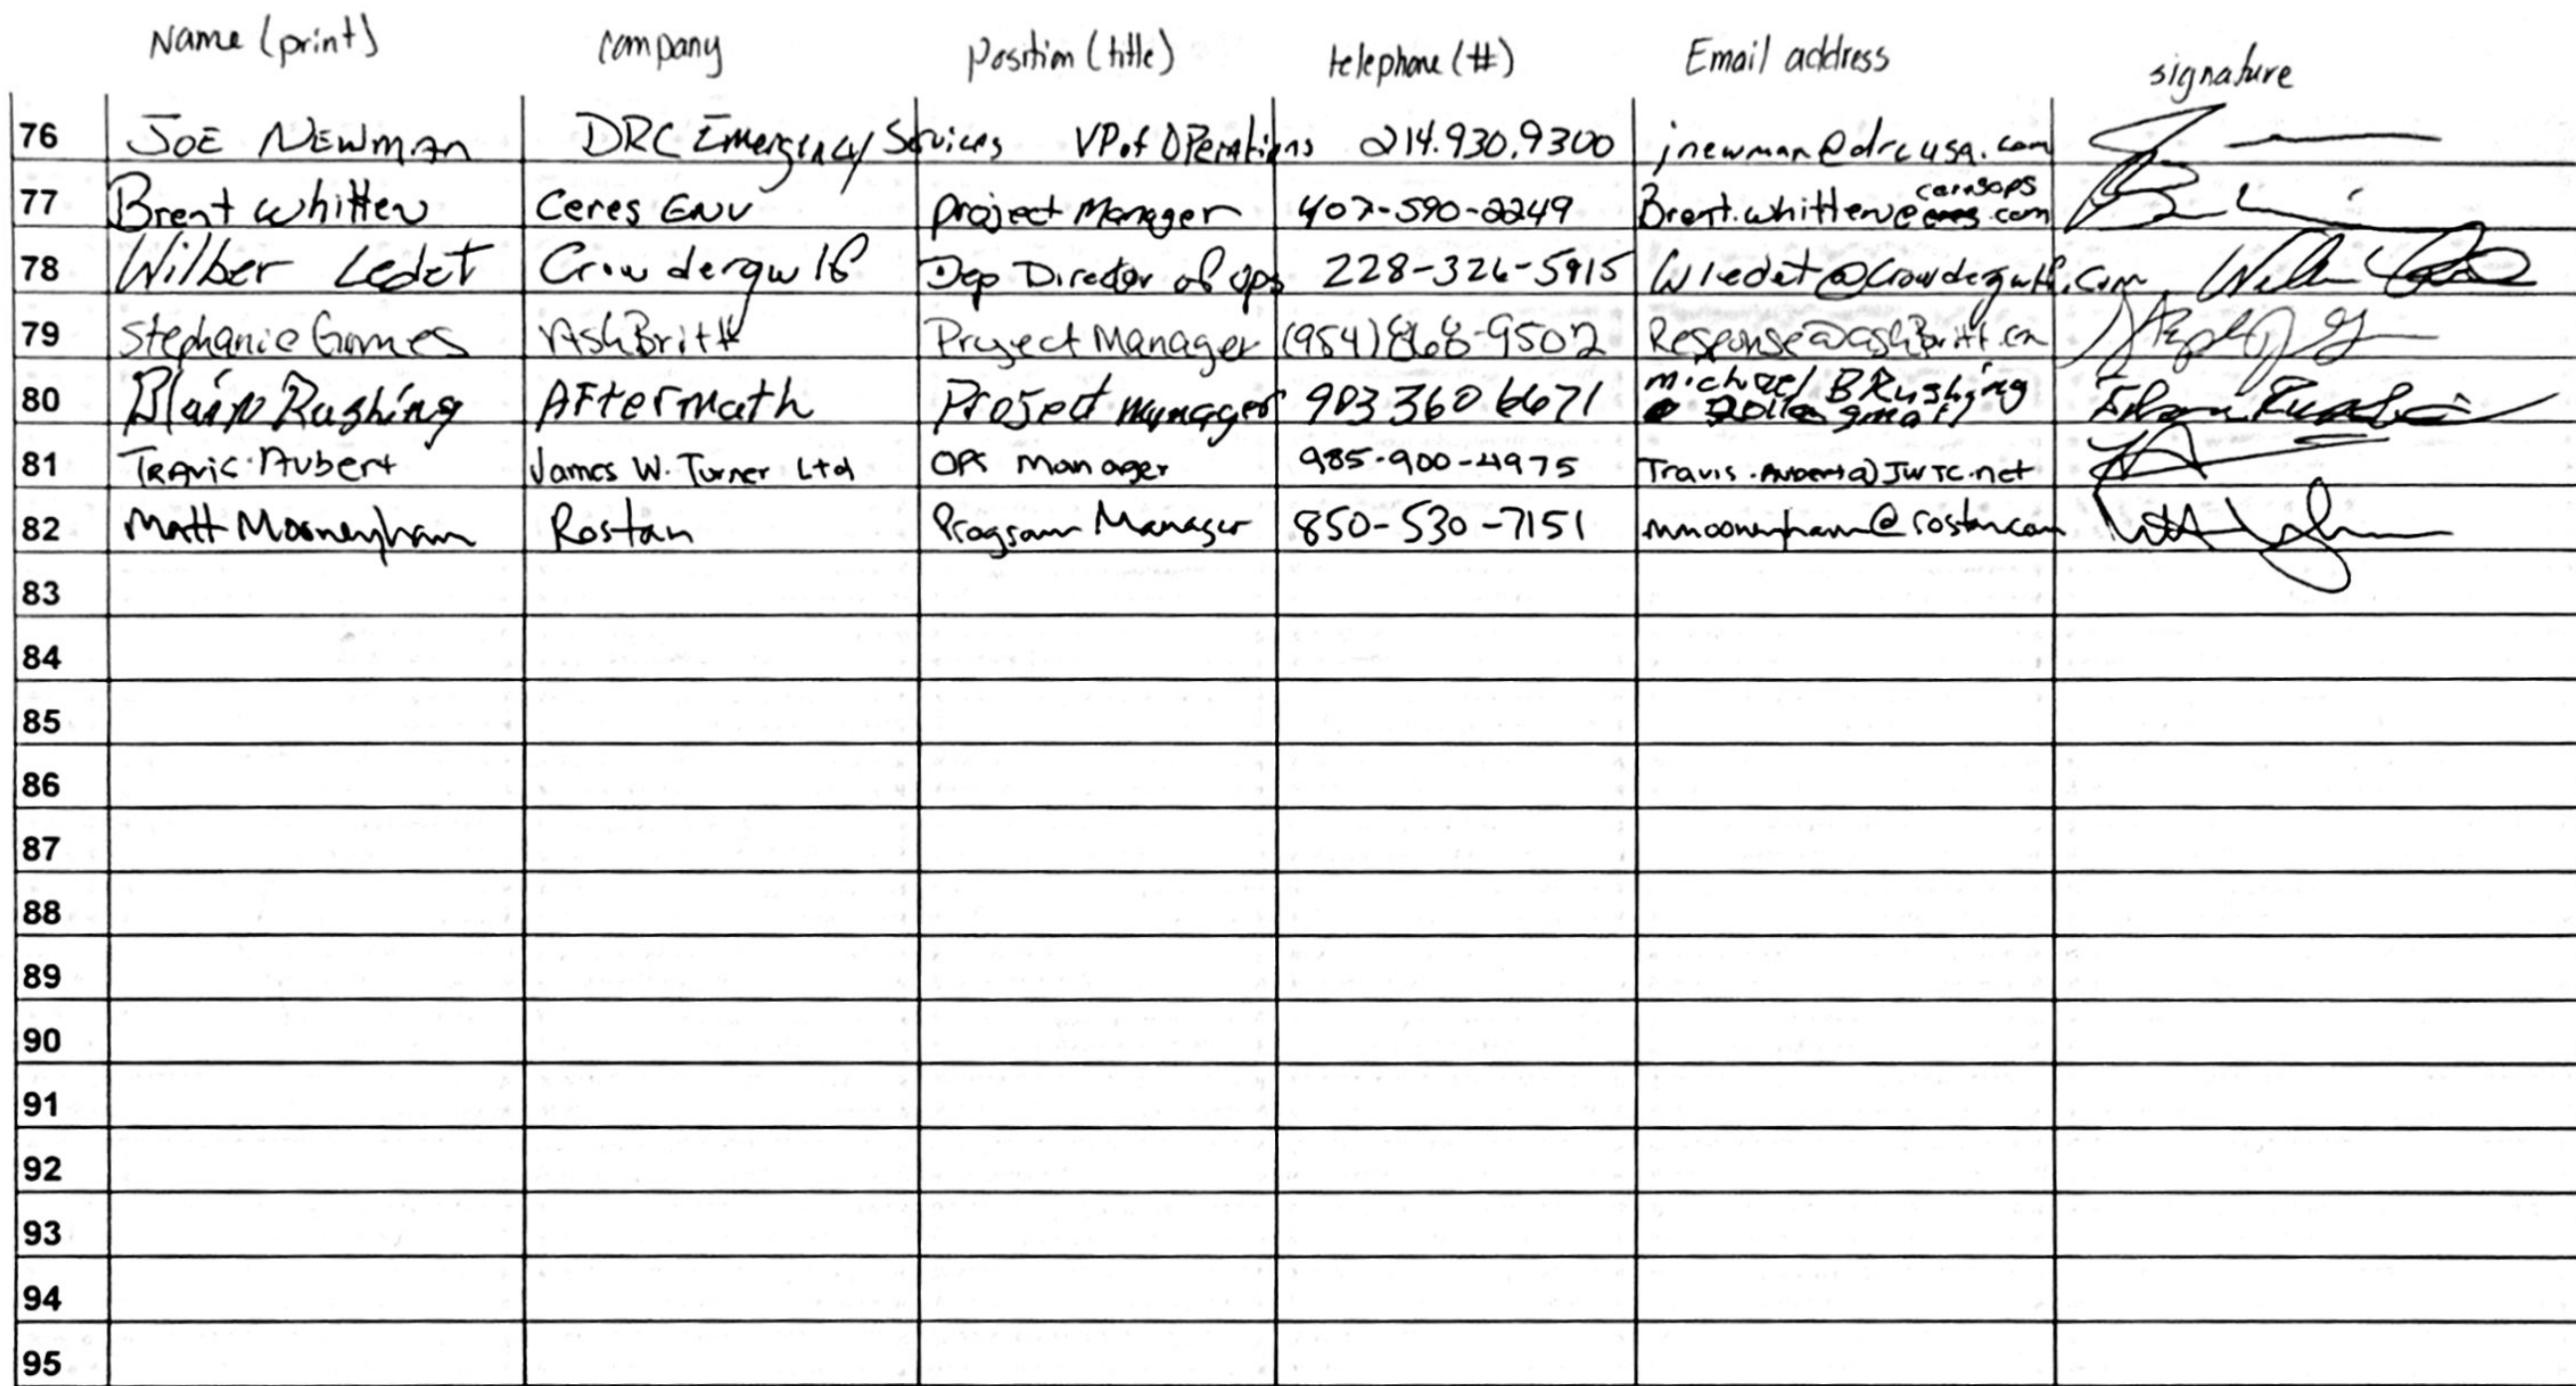 Name (print) company Position (title) telephone (#) Email address signature
76 JOE NEWMAN DRC Emergency Services VP of OPerations 214.930.9300 jnewman@drcusa.com
77 Brent Whitten Ceres ENV Project Manager 407-590-2249 Brent.whitten@ .com
78 Wilber Ledet Crowdergulf Dep Director of ops 228-326-5915 Wledet@Crowdergulf.com
79 Stephanie Gomes AshBritt Project Manager (954) 868-9502 Response@ashBritt.com
80 Blain Rushing AFterMath Project Manager 903 360 6671 michael BRushing
81 Travis Aubert James W. Turner Ltd OPS Manager 985-900-4975 Travis.Aubert@JWTC.net
82 Matt Mooneyham Rostan Program Manager 850-530-7151 mmooneyham@rostan.com
83
84
85
86
87
88
89
90
91
92
93
94
95